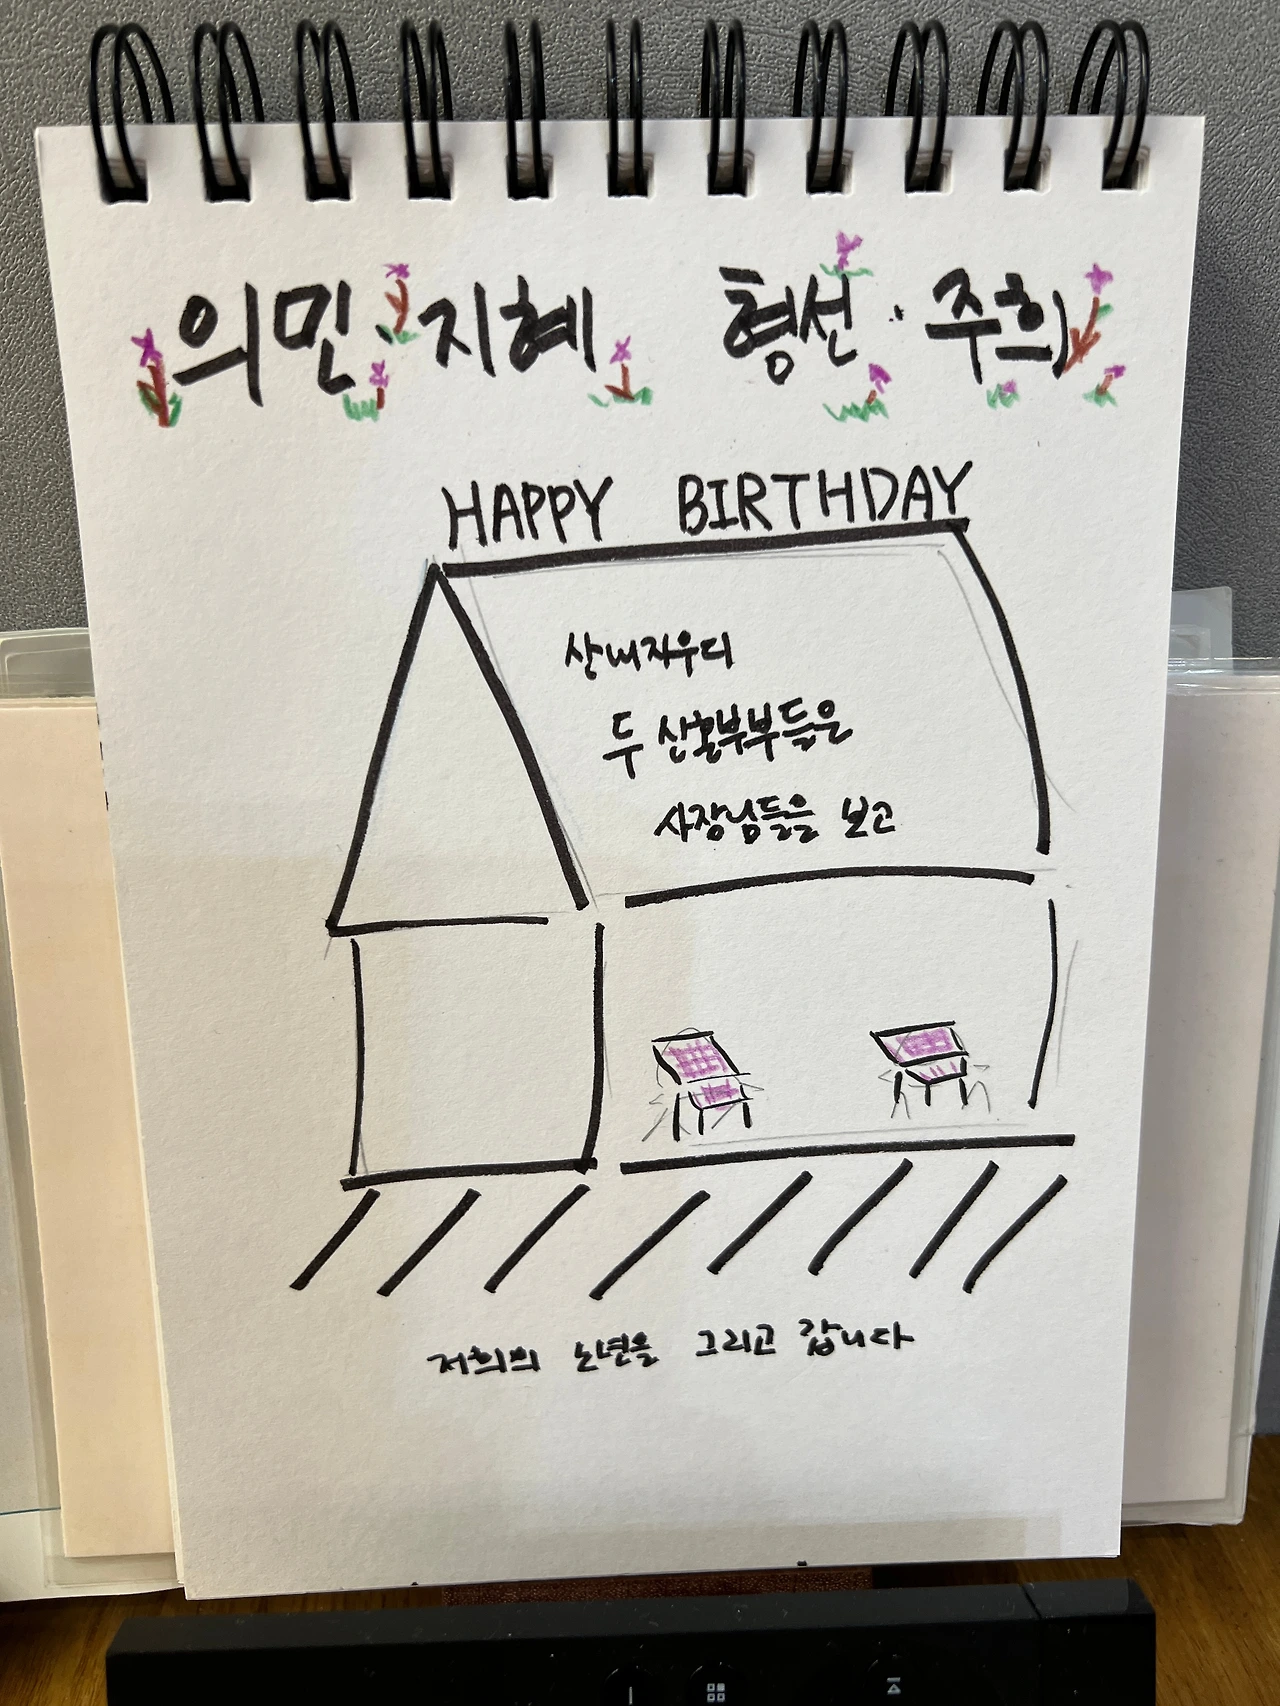 의민·지혜 형선·주희
HAPPY BIRTHDAY
두 신혼부부들은
사장님들을 보고
저희의 노년을 그리고 갑니다